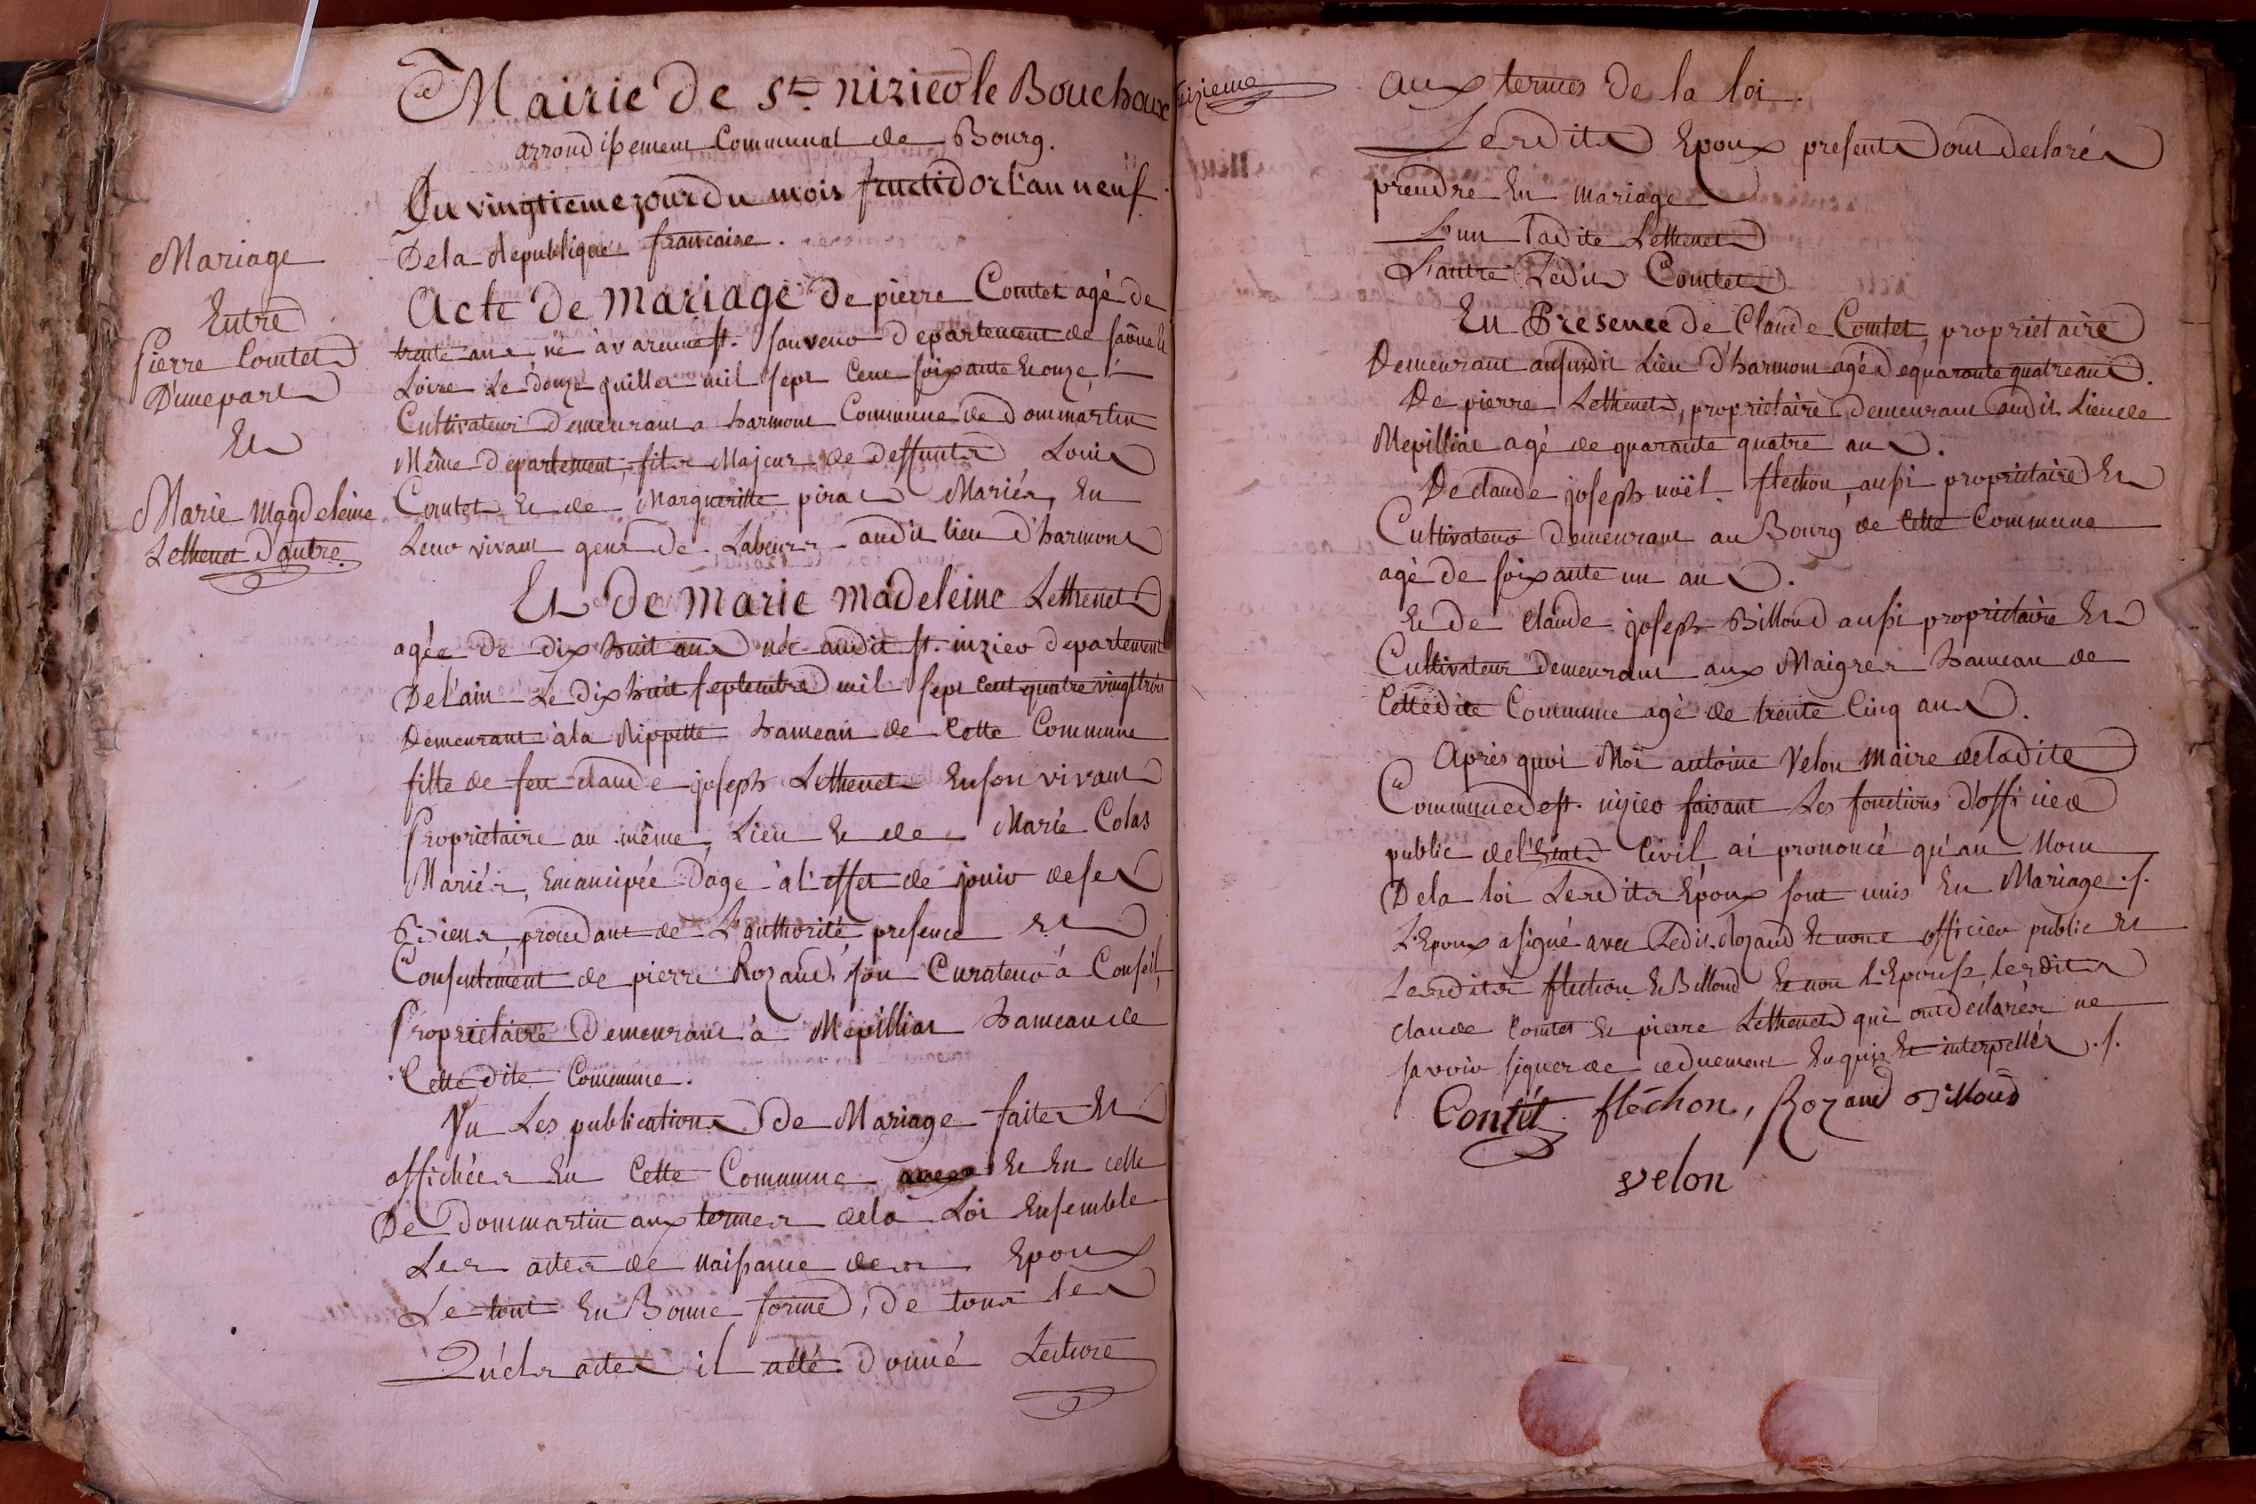 Mairie de St. nizier le Bouchoux
arrondissement Communal de Bourg.
Du vingtieme jour du mois fructidor l'an neuf
De la Republique francaise.
Mariage
Entre
Pierre Comtet
D'une part
Et
Marie Magdeleine
Lethenet d'autre.
Acte de Mariage de pierre Comtet agé de
trente ans, né à varenne st. sauveur departement de saône et
Loire Le douze juillet mil sept cent soixante et onze,
Cultivateur demeurant a harmont Commune de dommartin
Même departement, fils Majeur de deffunts Louis
Comtet et de Margueritte pirat Mariés, En
Leur vivant gens de Labeurs audit lieu d'harmont
Et De Marie Madeleine Lethenet
agée de dix huit ans née audit st. nizier departement
De l'ain Le dix huit septembre mil sept cent quatre vingt trois
Demeurant à la Rippette hameau de Cette Commune
fille de feu claude joseph Lethenet En son vivant
Proprietaire au même Lieu et de Marie Colas
Mariés, Emancipée D'age à l'effet de jouir de ses
Biens procedant de L'authorité presence et
Consentement de pierre Rozand, son Curateur à Conseil,
Proprietaire Demeurant à Mépilliat hameau de
Cette dite Commune.
Vu Les publications de Mariage faites Et
affichées En Cette Commune Et En celle
De Dommartin aux termes de la Loi Ensemble
Les actes de naissance des Epoux
Le tout En Bonne forme, de tous les
Quéls actes il a été donné Lecture
aux termes de la loi.
Lesdits Epoux presents ont declarés
prendre En mariage
L'un Ladite Lethenet
L'autre Ledit Comtet
En Presence de Claude Comtet, proprietaire
Demeurant au susdit Lieu d'harmont agé de quarante quatre ans.
De pierre Lethenet, proprietaire, demeurant audit Lieu de
Mepilliat agé de quarante quatre ans.
De claude joseph noël flechon, aussi proprietaire Et
Cultivateur demeurant au Bourg de Cette Commune
agé de soixante un ans.
Et de claude joseph Billoud aussi proprietaire Et
Cultivateur Demeurant aux Maigres hameau de
Cettedite Commune agé de trente Cinq ans.
Après quoi Moi antoine Velon maire de ladite
Commune de st. nizier faisant Les fonctions d'officier
public de l'Etat Civil ai prononcé qu'au Nom
De la loi Lesdits Epoux sont unis En Mariage.
L'Epoux a signé avec Ledit Rozand et nous officier public et
Lesdits flechon et Billoud et non L'Epouse, lesdits
claude Comtet et pierre Lethenet qui ont declarés ne
savoir signer de ce duement Enquis et interpellés.
Contét flèchon, Rozand Billoud
velon